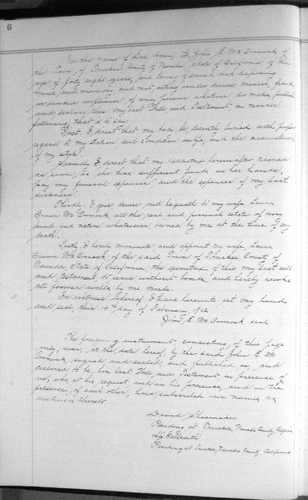 6
In the name of God, Amen, I, John E. McCormick of
the Town of Truckee, County of Nevada, State of California of the
age of forty eight years, and being of sound and disposing
mind and memory, and not acting under duress, menace, fraud
or undue influence of any person whatever, do make, publish
and declare this my last Will and Testament in manner
following, that is to say:
First. I direct that my body be decently buried with proper
regard to my station and condition in life, and the circumstances
of my estate.
Secondly, I direct that my executrix hereinafter named
as soon as she has sufficient funds in her hands,
pay my funeral expenses and the expenses of my last
sickness.
Thirdly, I give devise and bequeath to my wife
McCormick all the real and personal estate of every
kind and nature whatsoever owned by me at the time of my
death.
Lastly, I hereby nominate and appoint my wife
McCormick, of the said Town of Truckee County of
Nevada, State of California, the executrix of this my last will
and testament, to serve without bonds, and hereby revoke
all former wills by me made.
In witness whereof, I have hereunto set my hand
and seal this day of February
John E. McCormick seal
The foregoing instrument, consisting of this page
only, was, at the date hereof, by the said John E. Mc
Cormick signed and sealed and published as, and
declared to be, his last Will and Testament in presence of
us, who at his request and in his presence, and in the
presence of each other, have subscribed our names as
witnesses thereto.
Residing at Truckee, Nevada County, California
Residing at Truckee, Nevada County, California